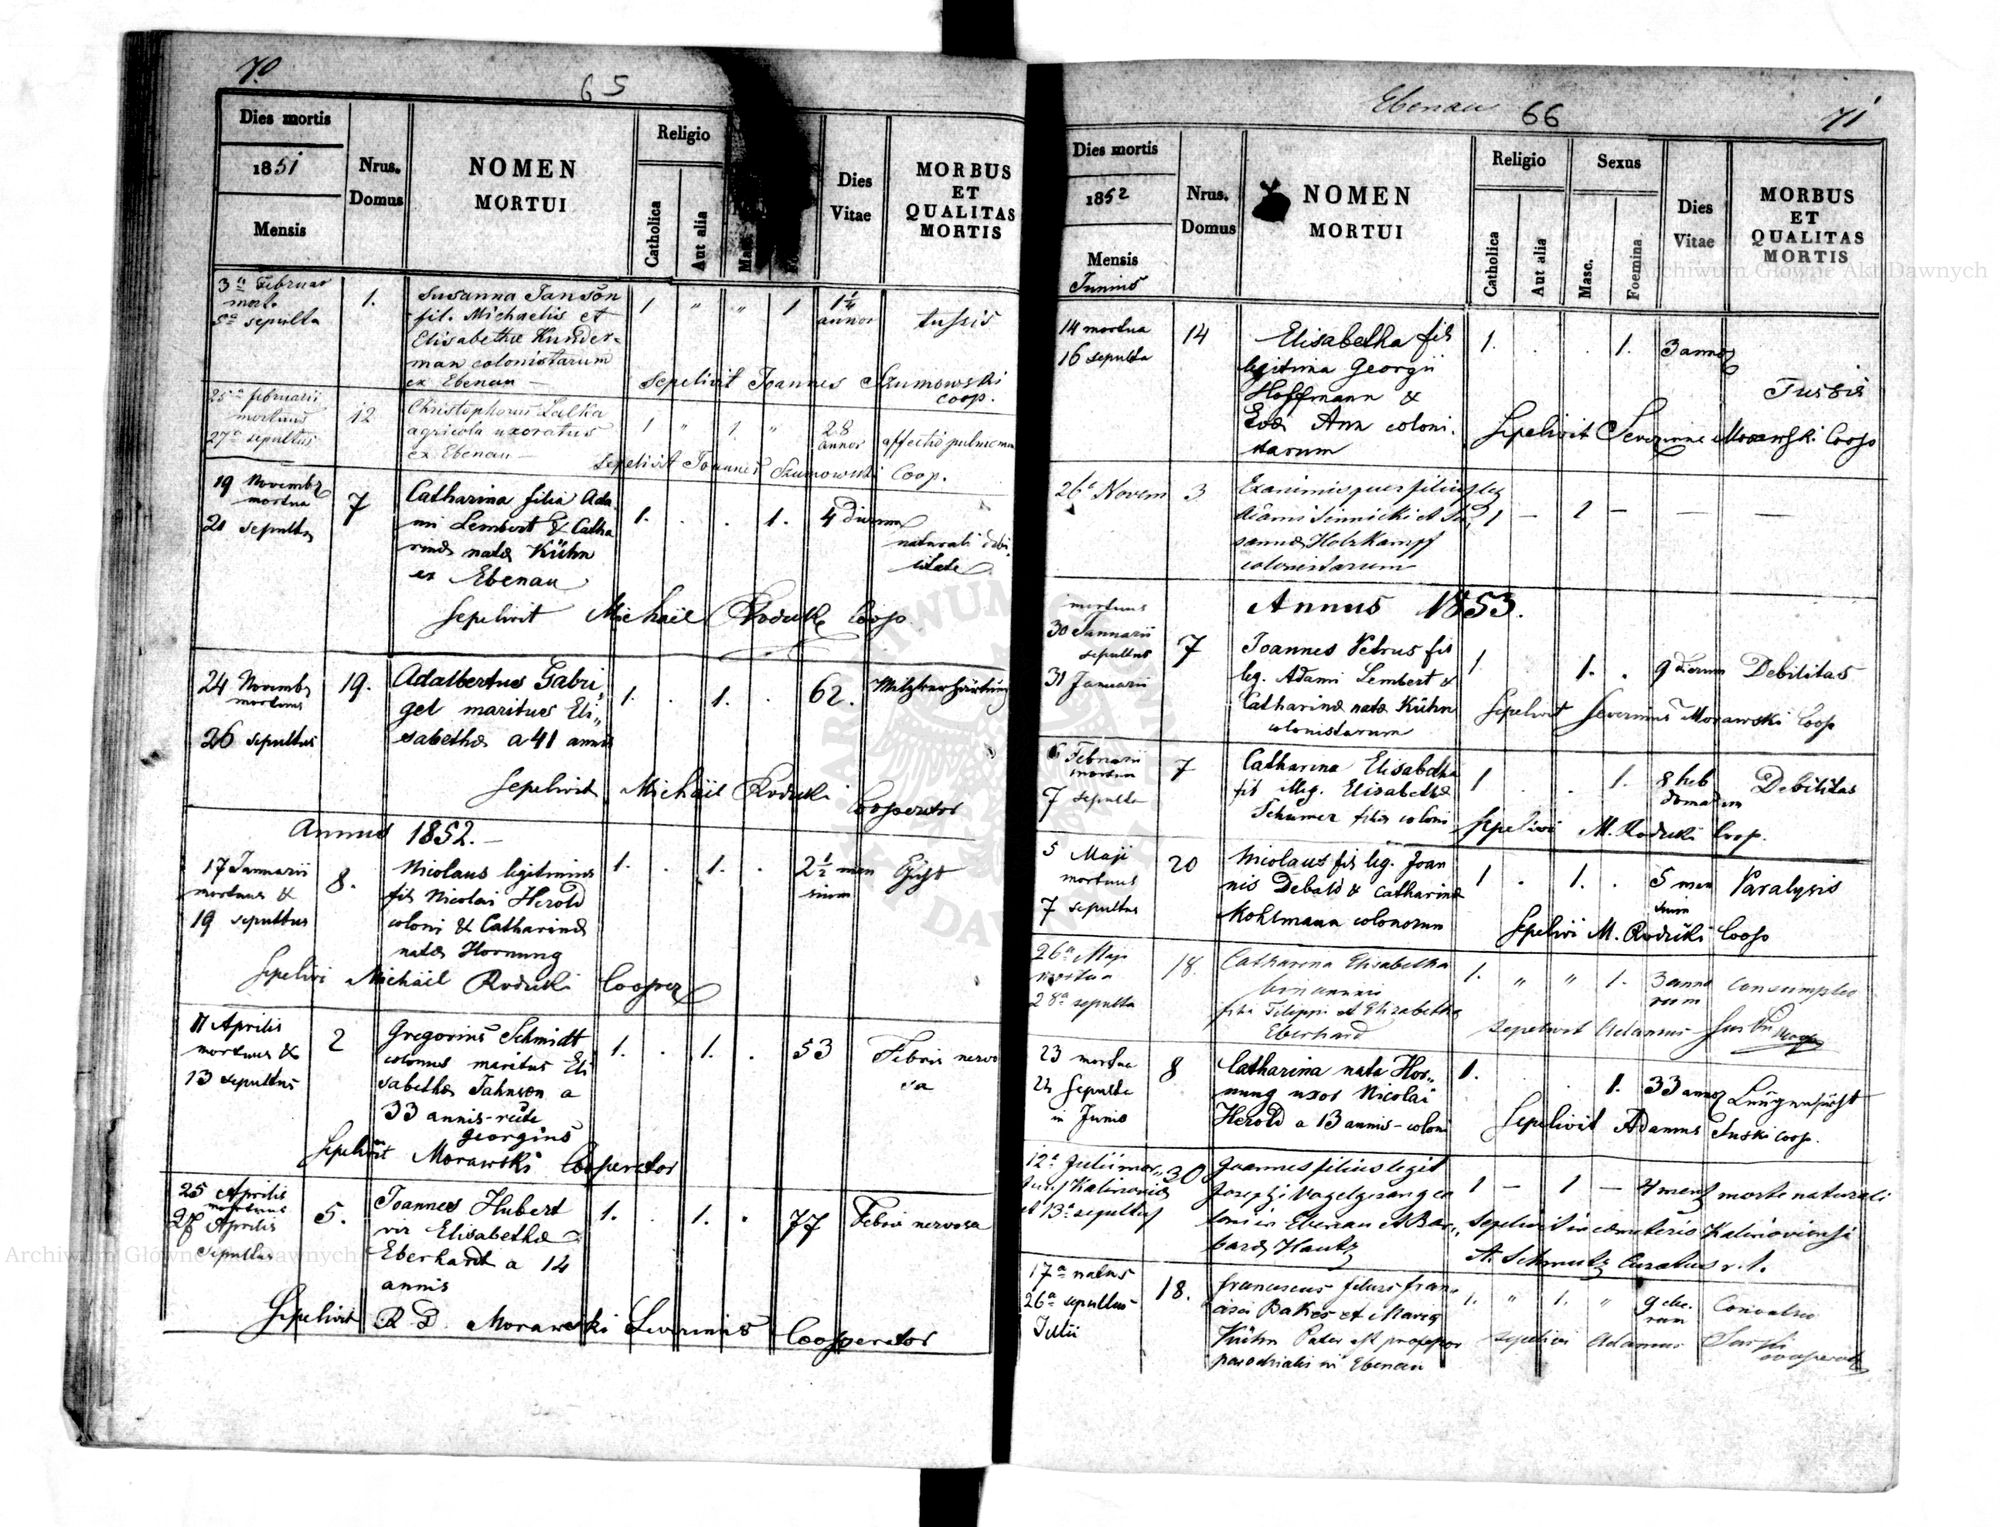 70
65
Dies mortis
1851
Mensis
Nrus. Domus
NOMEN
MORTUI
Religio
Catholica
Aut alia
Masc.
Dies
Vitae
MORBUS
ET
QUALITAS
MORTIS
3a Februar
mort.
5a sepulta
1.
Susanna Janson
fil. Michaelis et
Elisabethæ Kunder-
man colonistarum
ex Ebenau —
1 " " 1
1 1/4
annor
tussis
Sepelivit Joannes Szumowski
coop.
25a februarii
mortuus
27a sepultus
12
Christophorus Lalka
agricola uxoratus
ex Ebenau —
1 " 1. "
28
annor
affectio pulmonum
Sepelivit Joannes Szumowski Coop.
19 Novembr
mortua
20 sepulta
7
Catharina filia Ada
mi Lembert & Catha
rinæ natæ Kühn
ex Ebenau
1. . . 1.
4 dierum
naturali debi
litate
Sepelivit Michäel Rodecki Coop.
24 Novemb
mortuus
26 sepultus
19.
Adalbertus Gabri,
gel maritus Eli,,
sabethæ a 41 annis
1. . 1. .
62.
Milzverhärtung
Sepelivit Michäel Rodecki
Cooperator
Annus 1852.—
17 Januarii
mortuus &
19 sepultus
8.
Nicolaus legitimus
fil Nicolai Herold
coloni & Catharinæ
natæ Hornung
1. . 1. .
2 1/2 men
sium
Gicht
Sepelivi Michäel Rodecki Cooper
11 Aprilis
mortuus &
13 sepultus
2
Gregorius Schmidt
colonus maritus Eli
sabethæ Jahnson a
33 annis-recte
Georgius
1. . 1. .
53
Febris nervo
sa
Sepelivit Morawski Cooperator
25 Aprilis
mortuus
27 Aprilis
sepultus
5.
Joannes Hubert
vir Elisabethæ
Eberhardt a 14
annis
1. . 1. .
77
Febris nervosa
Sepelivit R D. Morawski Severinus Cooperator
Ebenau
66
71
Dies mortis
1852
Mensis
Junius
Nrus.
Domus
NOMEN
MORTUI
Religio
Catholica
Aut alia
Sexus
Masc.
Foemina
Dies
Vitae
MORBUS
ET
QUALITAS
MORTIS
14 mortua
16 sepulta
14
Elisabetha fil
legitima Georgii
Hoffmann &
Evæ Ann coloni.
starum
1. . . 1.
3 annor
Tussis
Sepelivit Severinus Morawski Coop
26a Novem
3
Exanimis puer filius leg
Adami Sinnicki et Su
sannæ Holzkampf
colonistarum
1 — 1 — — —
Annus 1853.
mortuus
30 Januarii
sepultus
31 Januarii
7
Joannes Petrus fil
leg. Adami Lembert &
Catharinæ natæ Kühn
colonistarum
1. 1. .
9 dierum
Debilitas
Sepelivit Severinus Morawski Coop
6 Februarii
mortua
7 sepulta
7
Catharina Elisabetha
fil illeg. Elisabethæ
Schumer filiæ coloni
1 . . 1.
8 heb
domadum
Debilitas
Sepelivi M. Rodecki Coop.
5 Maji
mortuus
7 sepultus
20
Nicolaus fil leg. Joan
nis Debald & Catharinæ
Mohlmann colonorum
1 . 1. .
5 men
sium
Paralysis
Sepelivi M. Rodecki Coop
26a Maji
mortua
28a sepulta
18.
Catharina Elisabetha
filia Filippi et Elizabetha
Eberhard
1. " " 1.
3 anno
rum
Consumptio
sepelivit Adamus Suski
23 mortua
24 Sepulta
in Junio
8
Catharina nata Hor,,
nung uxor Nicolai
Herold a 13 annis - coloni
1. . . 1.
33 annor
Lungensucht
Sepelivit Adamus Suski coop.
12a Julii mor,,
tuus Kalinoviæ
et 13a sepultus
30
Joannes filius legit
Josephi Vogelgesang co
loni in Ebenau et Bar,,
baræ Hautz
1 — 1 —
4 mens
morte naturali
Sepelivit in cemeterio Kalinoviensi
A. Schmutz Curatus r. l.
17a natus
26a sepultus
Julii
18.
Franciscus filius Fran
cisci Bakes et Maria
Kühn Pater est professor
parochialis in Ebenau
1. " 1. "
9 die.
rum
Convulsio
sepelivi Adamus Suski
cooperat
Archiwum Główne Akt Dawnych
Archiwum Główne Akt Dawnych